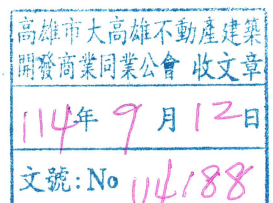 高雄市大高雄不動產建築
開發商業同業公會 收文章
114年9月12日
文號:No 114188